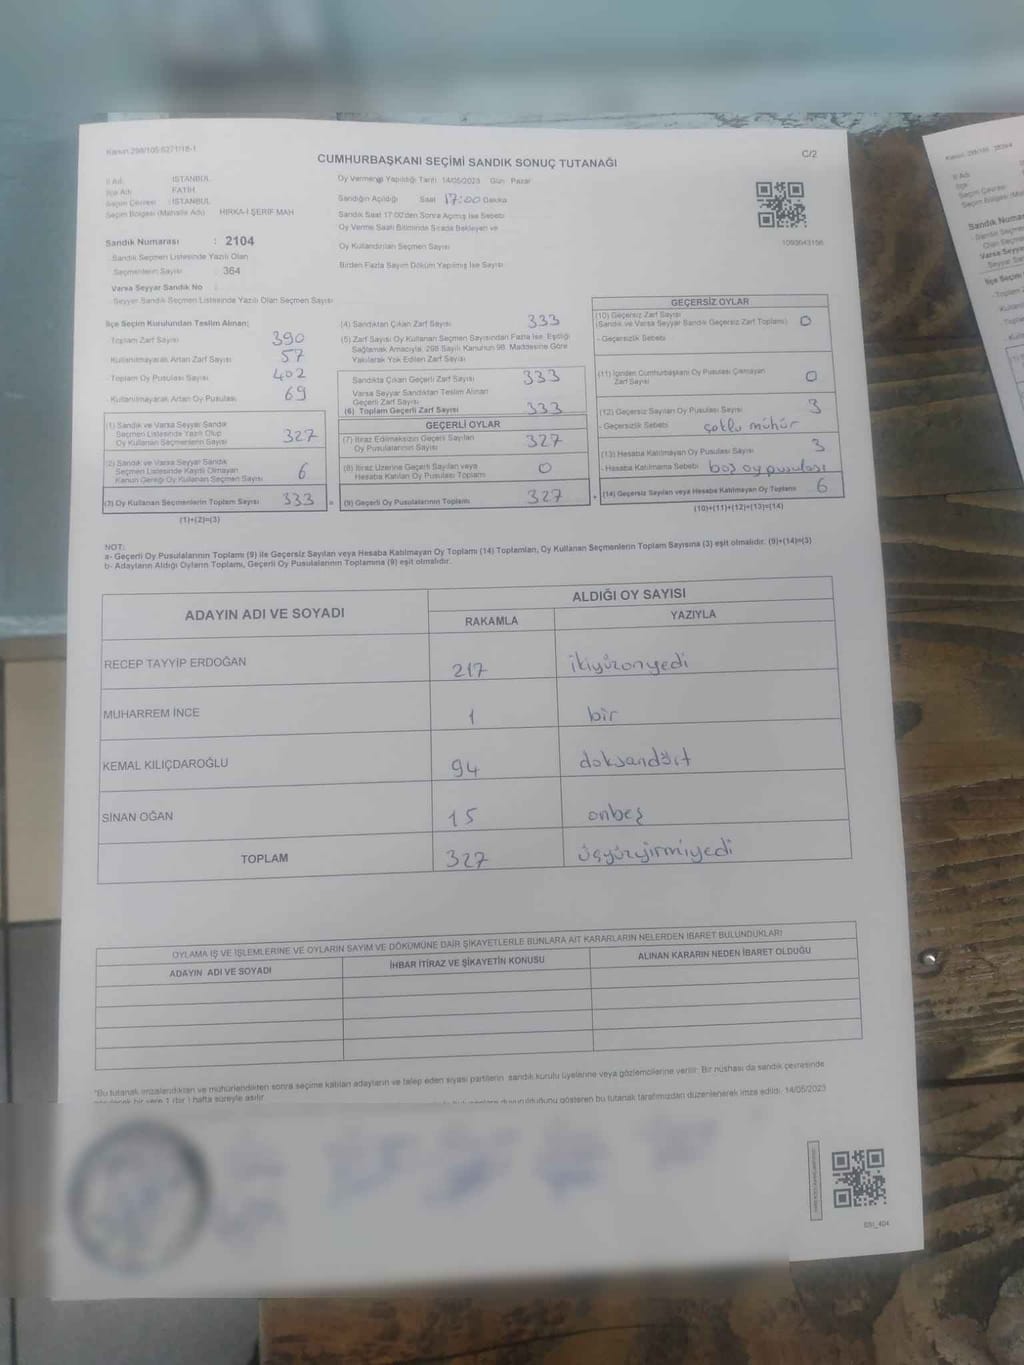 Kanun 298/105 6271/18-1
C/2
CUMHURBAŞKANI SEÇİMİ SANDIK SONUÇ TUTANAĞI
İl Adı : İSTANBUL
İlçe Adı : FATİH
Seçim Çevresi : İSTANBUL
Seçim Bölgesi (Mahalle Adı) HIRKA-İ ŞERİF MAH
Sandık Numarası : 2104
Sandık Seçmen Listesinde Yazılı Olan
Seçmenlerin Sayısı : 364
Varsa Seyyar Sandık No
Seyyar Sandık Seçmen Listesinde Yazılı Olan Seçmen Sayısı
Oy Vermenin Yapıldığı Tarih 14/05/2023 Gün: Pazar
Sandığın Açıldığı Saat 17:00 Dakika
Sandık Saat 17:00'den Sonra Açmış İse Sebebi
Oy Verme Saati Bitiminde Sırada Bekleyen ve
Oy Kullandırılan Seçmen Sayısı
Birden Fazla Sayım Döküm Yapılmış İse Sayısı
1093643156
İlçe Seçim Kurulundan Teslim Alınan;
- Toplam Zarf Sayısı 390
- Kullanılmayarak Artan Zarf Sayısı 57
- Toplam Oy Pusulası Sayısı 402
- Kullanılmayarak Artan Oy Pusulası 69
(1) Sandık ve Varsa Seyyar Sandık
Seçmen Listesinde Yazılı Olup
Oy Kullanan Seçmenlerin Sayısı 327
(2) Sandık ve Varsa Seyyar Sandık
Seçmen Listesinde Kayıtlı Olmayan
Kanun Gereği Oy Kullanan Seçmen Sayısı 6
(3) Oy Kullanan Seçmenlerin Toplam Sayısı 333
(1)+(2)=(3)
(4) Sandıktan Çıkan Zarf Sayısı 333
(5) Zarf Sayısı Oy Kullanan Seçmen Sayısından Fazla İse, Eşitliği
Sağlamak Amacıyla, 298 Sayılı Kanunun 98. Maddesine Göre
Yakılarak Yok Edilen Zarf Sayısı
Sandıkta Çıkan Geçerli Zarf Sayısı 333
Varsa Seyyar Sandıktan Teslim Alınan
Geçerli Zarf Sayısı
(6) Toplam Geçerli Zarf Sayısı 333
GEÇERLİ OYLAR
(7) İtiraz Edilmeksizin Geçerli Sayılan
Oy Pusulalarının Sayısı 327
(8) İtiraz Üzerine Geçerli Sayılan veya
Hesaba Katılan Oy Pusulası Toplamı 0
= (9) Geçerli Oy Pusulalarının Toplamı 327
GEÇERSİZ OYLAR
(10) Geçersiz Zarf Sayısı
(Sandık ve Varsa Seyyar Sandık Geçersiz Zarf Toplamı) 0
- Geçersizlik Sebebi
(11) İçinden Cumhurbaşkanı Oy Pusulası Çıkmayan
Zarf Sayısı 0
(12) Geçersiz Sayılan Oy Pusulası Sayısı 3
- Geçersizlik Sebebi çoklu mühür
(13) Hesaba Katılmayan Oy Pusulası Sayısı 3
- Hesaba Katılmama Sebebi boş oy pusulası
+ (14) Geçersiz Sayılan veya Hesaba Katılmayan Oy Toplamı 6
(10)+(11)+(12)+(13)=(14)
NOT:
a- Geçerli Oy Pusulalarının Toplamı (9) ile Geçersiz Sayılan veya Hesaba Katılmayan Oy Toplamı (14) Toplamları, Oy Kullanan Seçmenlerin Toplam Sayısına (3) eşit olmalıdır. (9)+(14)=(3)
b- Adayların Aldığı Oyların Toplamı, Geçerli Oy Pusulalarının Toplamına (9) eşit olmalıdır.
ADAYIN ADI VE SOYADI
ALDIĞI OY SAYISI
RAKAMLA YAZIYLA
RECEP TAYYİP ERDOĞAN 217 ikiyüzonyedi
MUHARREM İNCE 1 bir
KEMAL KILIÇDAROĞLU 94 doksandört
SİNAN OĞAN 15 onbeş
TOPLAM 327 üçyüzyirmiyedi
OYLAMA İŞ VE İŞLEMLERİNE VE OYLARIN SAYIM VE DÖKÜMÜNE DAİR ŞİKAYETLERLE BUNLARA AİT KARARLARIN NELERDEN İBARET BULUNDUKLARI
ADAYIN ADI VE SOYADI İHBAR İTİRAZ VE ŞİKAYETİN KONUSU ALINAN KARARIN NEDEN İBARET OLDUĞU
*Bu tutanak imzalandıktan ve mühürlendikten sonra seçime katılan adayların ve talep eden siyasi partilerin sandık kurulu üyelerine veya gözlemcilerine verilir. Bir nüshası da sandık çevresinde
bir yere 1 (bir ) hafta süreyle asılır.
duyurulduğunu gösteren bu tutanak tarafımızdan düzenlenerek imza edildi. 14/05/2023
SSI_404